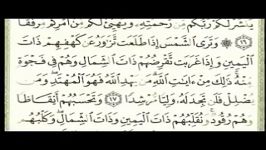 يَنشُرْ لَكُمْ رَبُّكُم مِّن رَّحْمَتِهِۦ وَيُهَيِّئْ لَكُم مِّنْ أَمْرِكُم مِّرْفَقًا
۝١٦ وَتَرَى ٱلشَّمْسَ إِذَا طَلَعَت تَّزَٰوَرُ عَن كَهْفِهِمْ ذَاتَ
ٱلْيَمِينِ وَإِذَا غَرَبَت تَّقْرِضُهُمْ ذَاتَ ٱلشِّمَالِ وَهُمْ فِى فَجْوَةٍ
مِّنْهُ ذَٰلِكَ مِنْ ءَايَٰتِ ٱللَّهِ مَن يَهْدِ ٱللَّهُ فَهُوَ ٱلْمُهْتَدِ وَمَن
يُضْلِلْ فَلَن تَجِدَ لَهُۥ وَلِيًّا مُّرْشِدًا ۝١٧ وَتَحْسَبُهُمْ أَيْقَاظًا
وَهُمْ رُقُودٌ وَنُقَلِّبُهُمْ ذَاتَ ٱلْيَمِينِ وَذَاتَ ٱلشِّمَالِ وَكَلْبُهُم